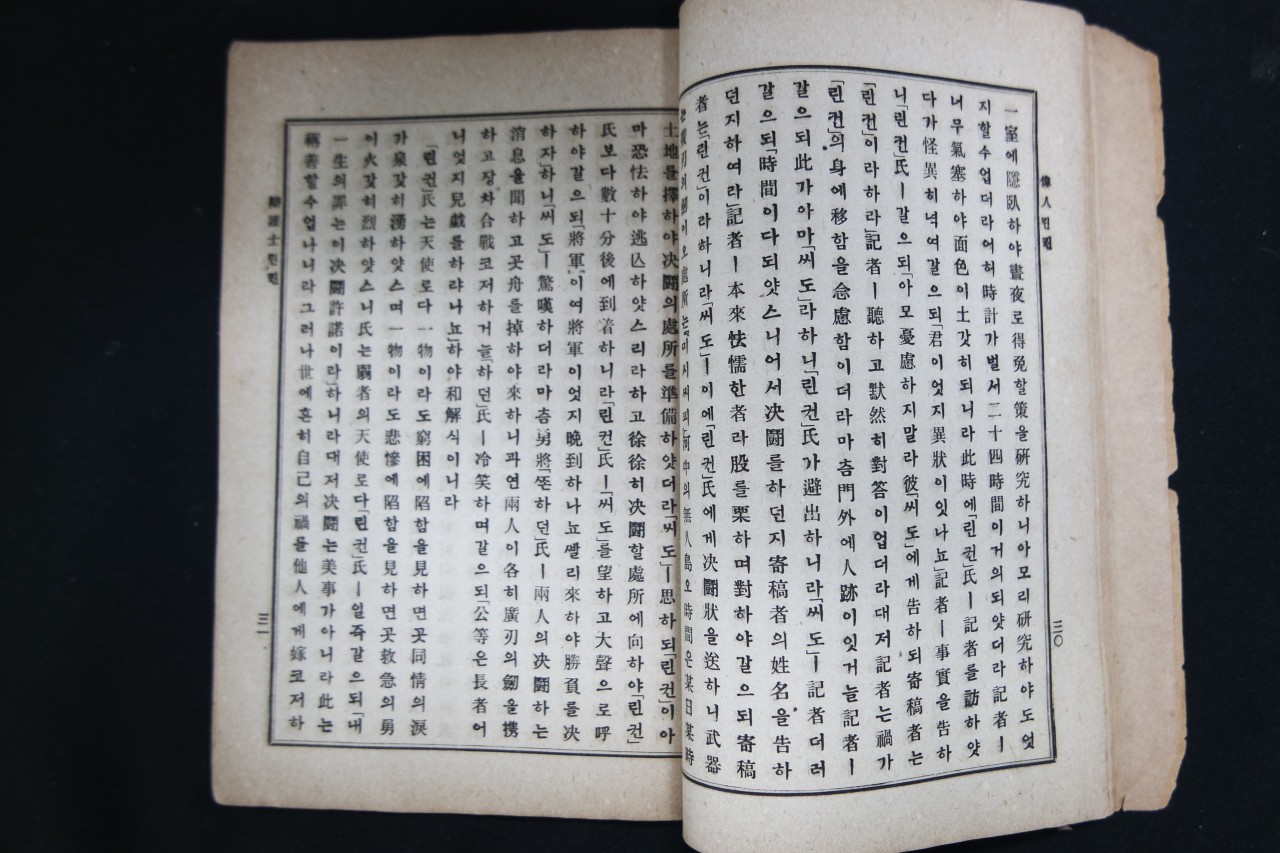 偉人린컨
三〇
一室에隱臥하야晝夜로得免할策을硏究하니아모리硏究하야도엇
지할수업더라어허時計가벌서二十四時間이거의되얏더라記者ㅣ
너무氣塞하야面色이土갓히되니라此時에「린컨」氏ㅣ記者를訪하얏
다가怪異히녁여갈으되「君이엇지異狀이잇나뇨」記者ㅣ事實을告하
니「린컨」氏ㅣ갈으되「아모憂慮하지말라彼「씨도」에게告하되寄稿者는
「린컨」이라하라」記者ㅣ聽하고默然히對答이업더라대저記者는禍가
「린컨」의身에移함을念慮함이더라마츰門外에人跡이잇거늘記者ㅣ
갈으되此가아마「씨도」라하니「린컨」氏가避出하니라「씨도」ㅣ記者더러
갈으되「時間이다되얏스니어서决鬪를하던지寄稿者의姓名을告하
던지하여라」記者ㅣ本來怯懦한者라股를栗하며對하야갈으되寄稿
者는「린컨」이라하니라「씨도」ㅣ이에「린컨」氏에게决鬪狀을送하니武器
는廣刃의劒이오處所는「미시씨피」河中의無人島오時間은某日某時
土地를擇하야决鬪의處所를準備하얏더라「씨도」ㅣ思하되「린컨」이아
마恐怯하야逃亡하얏스리라하고徐徐히决鬪할處所에向하야「린컨」
氏보다數十分後에到着하니라「린컨」氏ㅣ「씨도」를望하고大聲으로呼
하야갈으되「將軍이여將軍이엇지晩到하나뇨빨리來하야勝負를决
하자」하니「씨도」ㅣ驚嘆하더라마츰勇將「쪼하던」氏ㅣ兩人의决鬪하는
消息을聞하고곳舟를掉하야來하니과연兩人이各히廣刃의劒을携
하고장차合戰코저하거늘「하던」氏ㅣ冷笑하며갈으되「公等은長者어
니엇지兒戱를하랴나뇨」하야和解식이니라
「린컨」氏는天使로다一物이라도窮困에陷함을見하면곳同情의淚
가泉갓히湧하얏스며一物이라도悲慘에陷함을見하면곳救急의勇
이火갓히烈하얏스니氏는弱者의天使로다「린컨」氏ㅣ일즉갈으되「내
一生의罪는이决鬪許諾이라」하니라대저决鬪는美事가아니라此는
稱善할수업나니라그러나世에흔히自己의禍를他人에게嫁코저하
辯護士린컨
三一